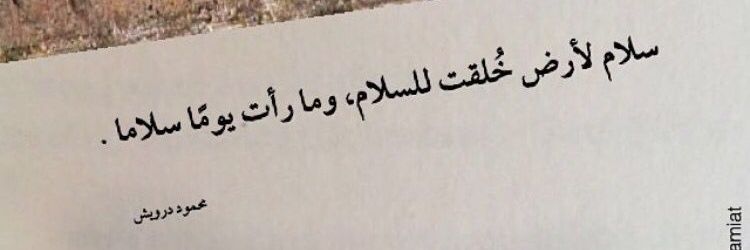 سلام لأرض خُلقت للسلام، وما رأت يومًا سلاما .
محمود درويش
amiat